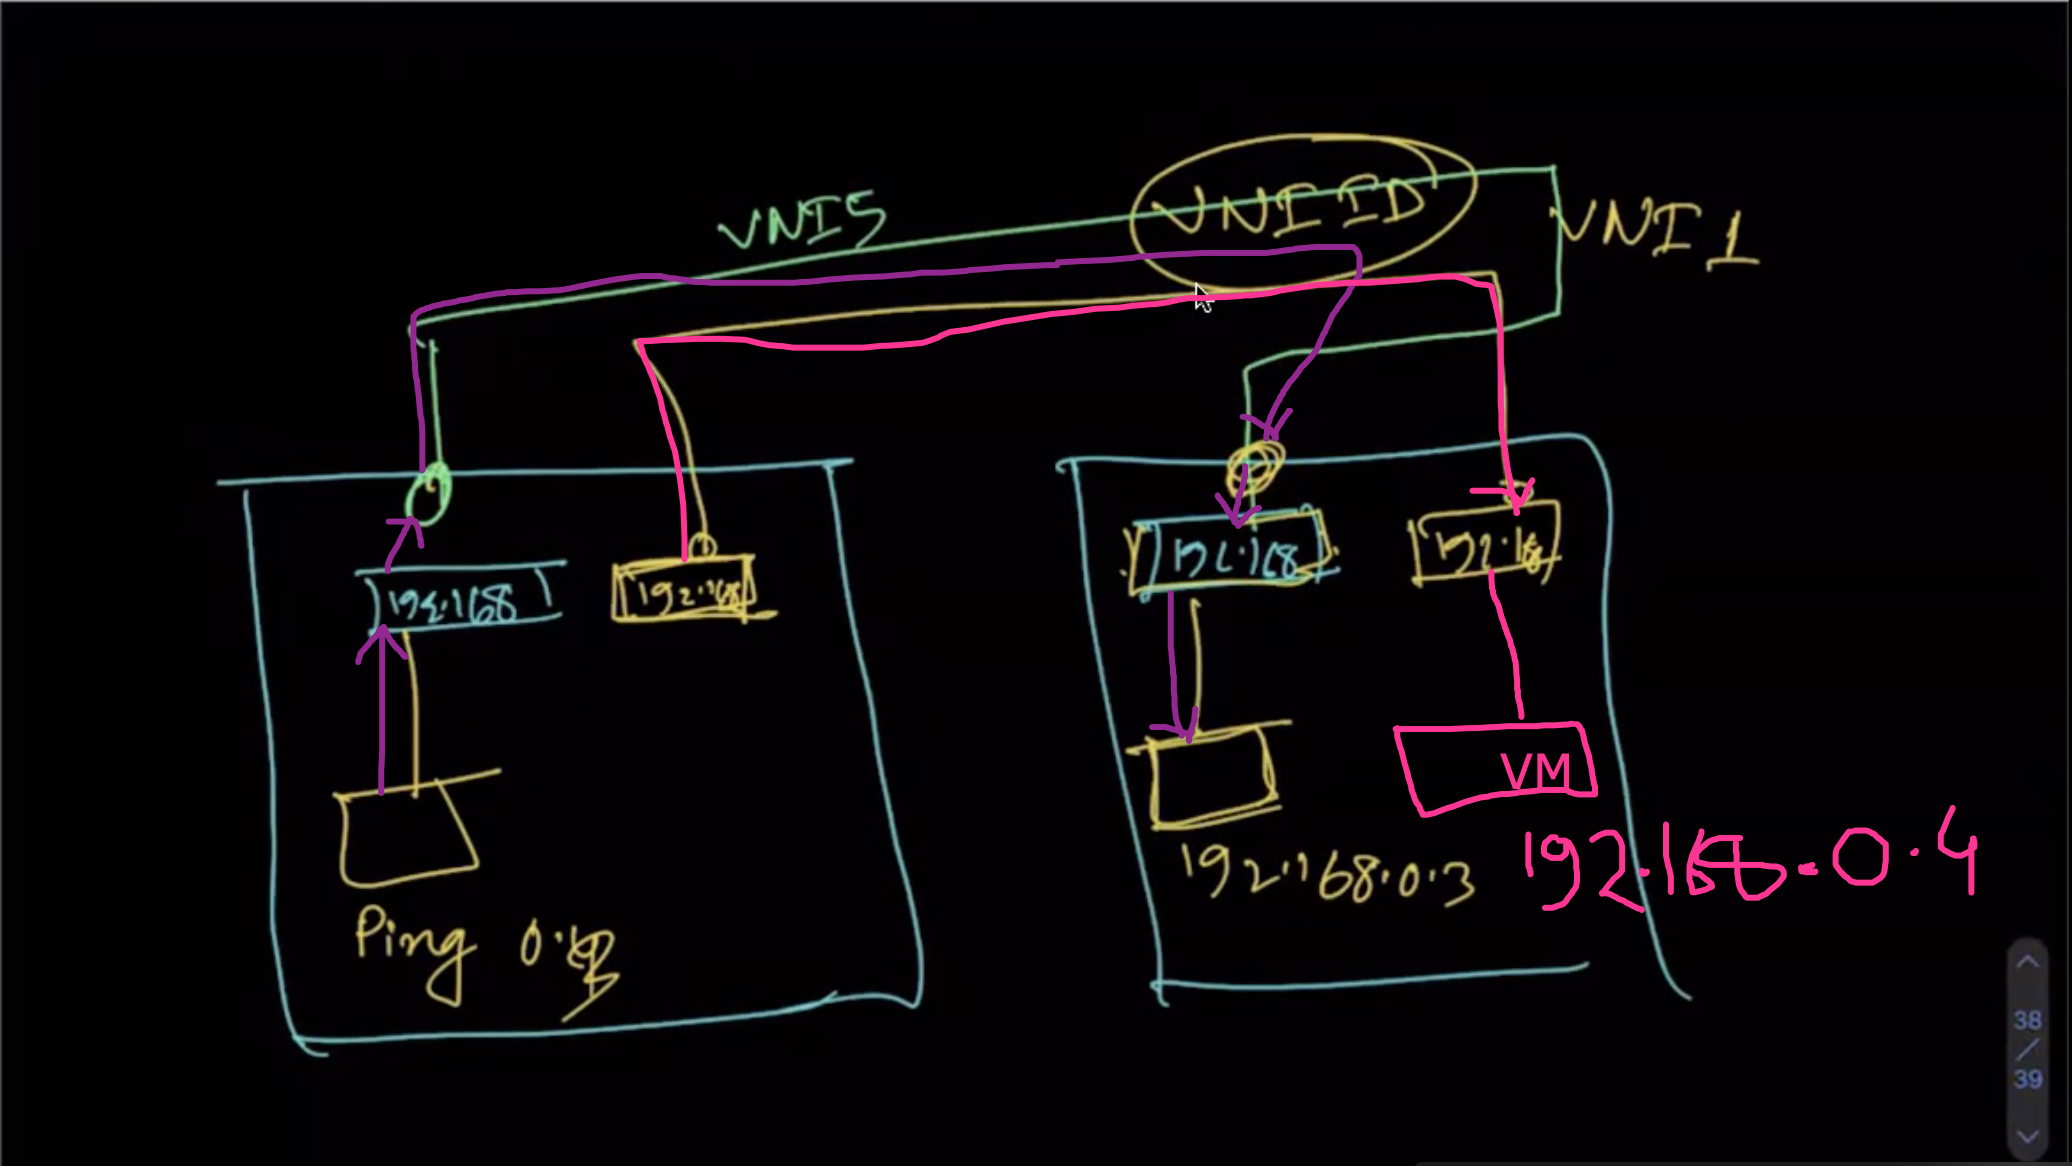 VNI5
VNI ID
VNI 1
192.168
192.168
192.168
192.168
VM
192.168.0.3
192.168.0.4
Ping 0.
38
/
39